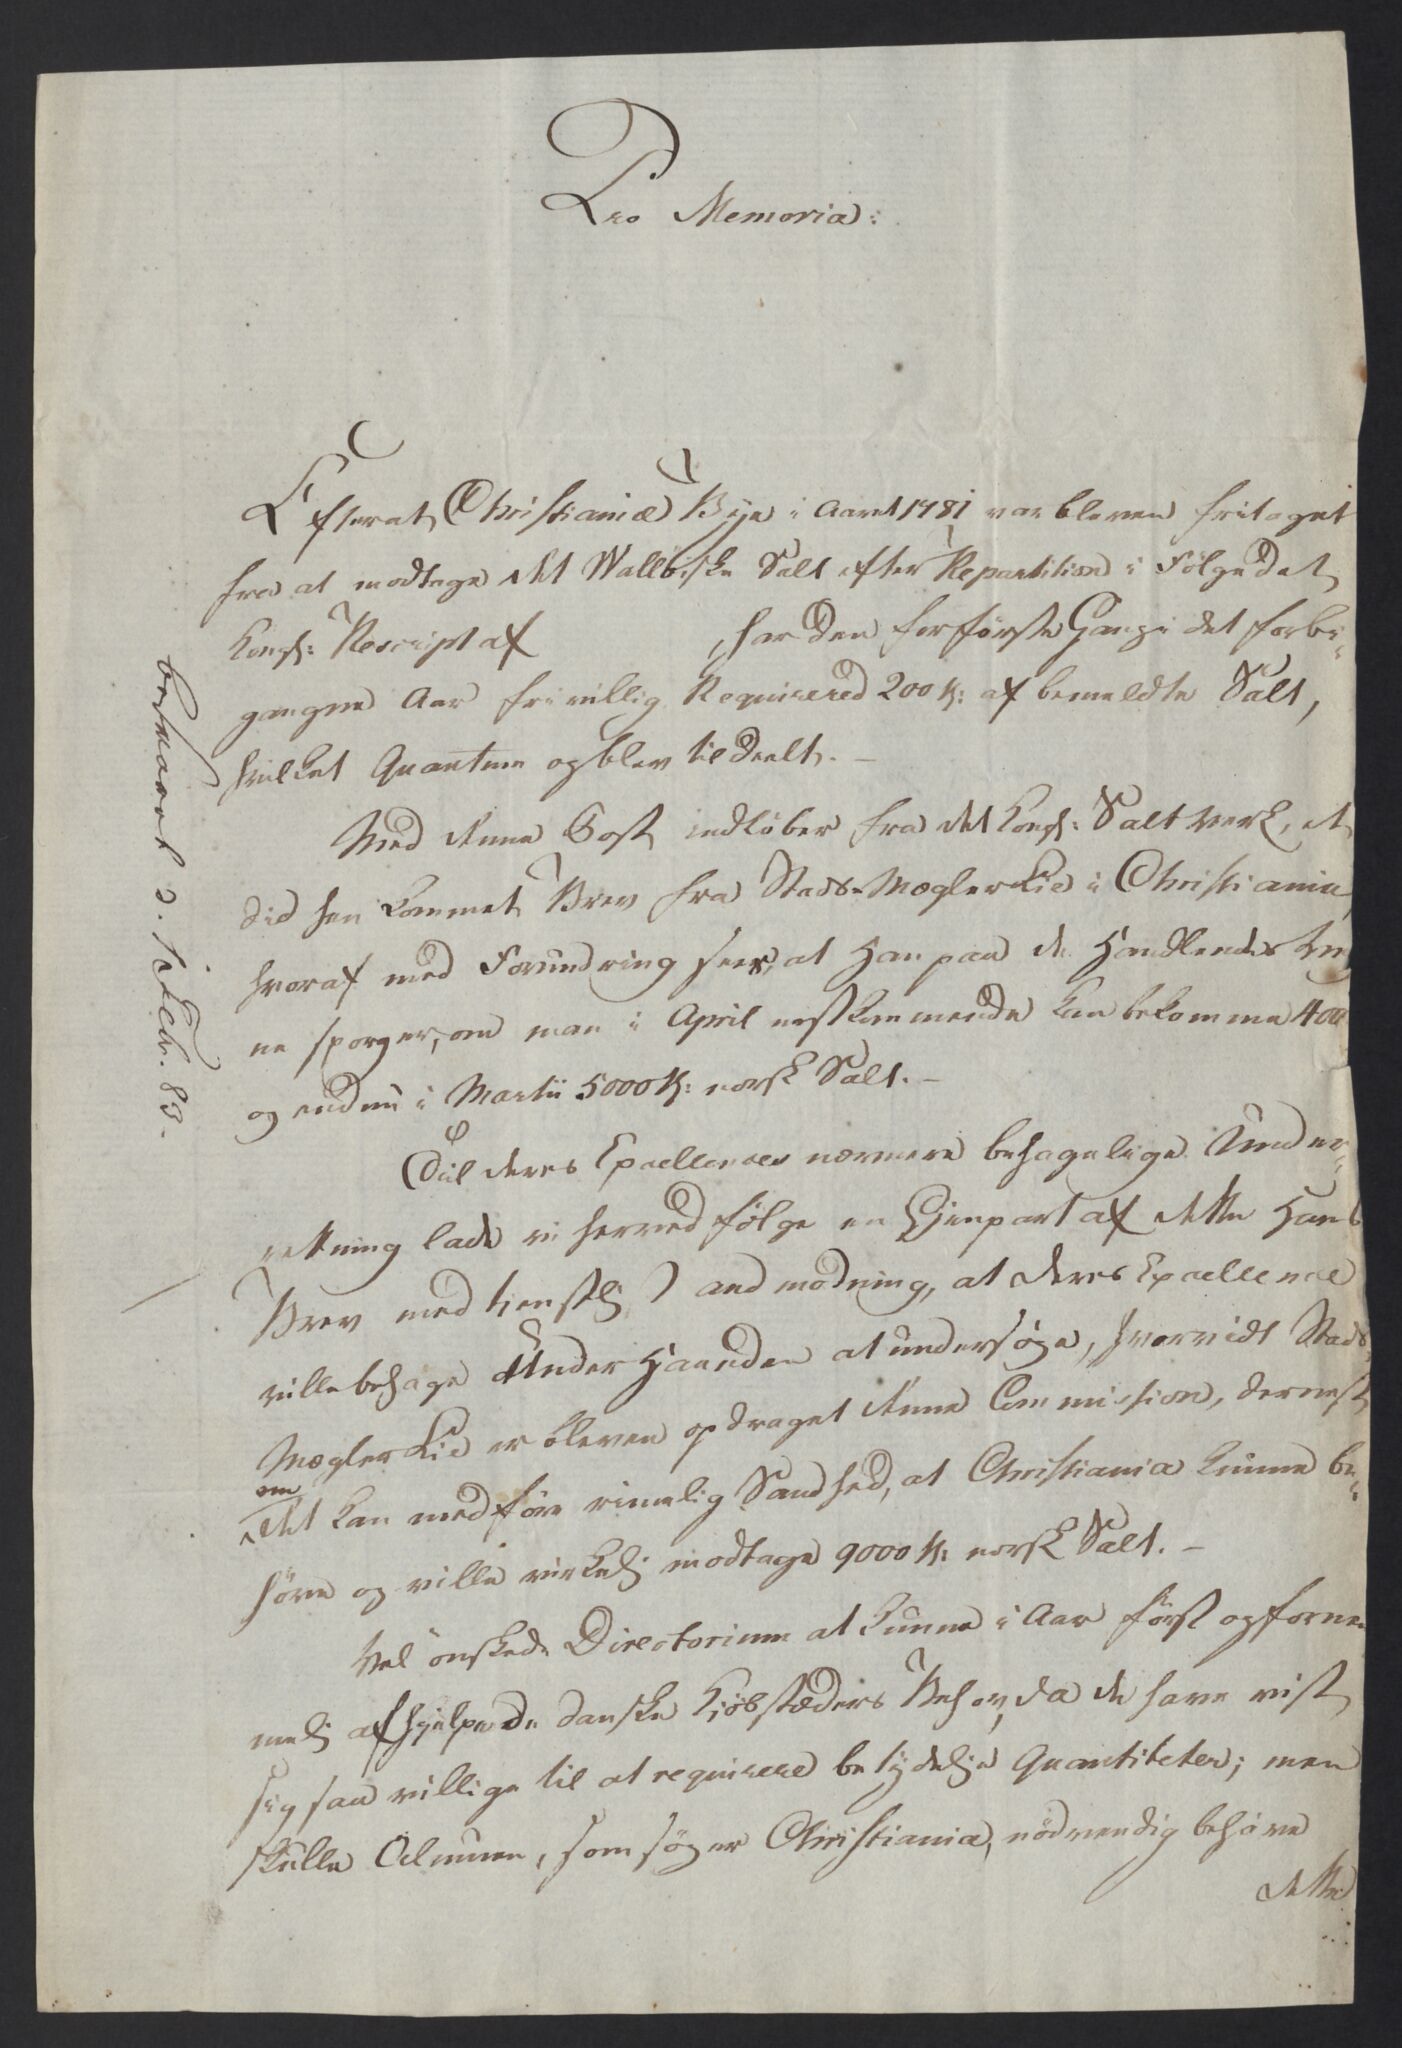 Pro Memoria:
Efterat Christianiæ Bye i Aaret 1781 var bleven fritaget
fra at modtage det Walløiske Salt efter Repartition i Følge det
Kongl: Rescript af , har den for første Gang i det forbi-
gangne Aar frivillig Requirered 200 t: af bemeldte Salt,
hvilket Quantum og blev tildeelt. -
Med denne Post indløber fra det Kongl: Saltverk, et
did hen kommet Brev fra Stads-Mægler Lie i Christiania,
hvoraf med Forundring sees, at Han paa de Handlendes Veg-
ne spørger, om man i April nestkommende kan bekomme 400
og endnu i Martii 5000 t: norsk Salt. -
Til deres Excellences nærmere behagelige Under-
retning lade vi herved følge en Gjenpart af dette Hans
Brev med tienstl: Anmodning, at deres Excellence
ville behage Under Haanden at undersøge, hvorvidt Stads
Mægler Lie er bleven opdraget denne Commission, dernest
om
det kan medføre rimelig Sandhed, at Christiania kunne be-
høve og ville virkelig modtage 9000 t: norsk Salt. -
Vel ønskede Directorium at kunne i Aar først og forne-
melig afhjelpe de danske Kiøbstæders Behov, da de have vist
sig saa villige til at requirere betydelige Quantiteter; men
skulle Almuen, som søger Christiania, nødvendig behøve
dette
besvaret d. 1ste Febr. 83.